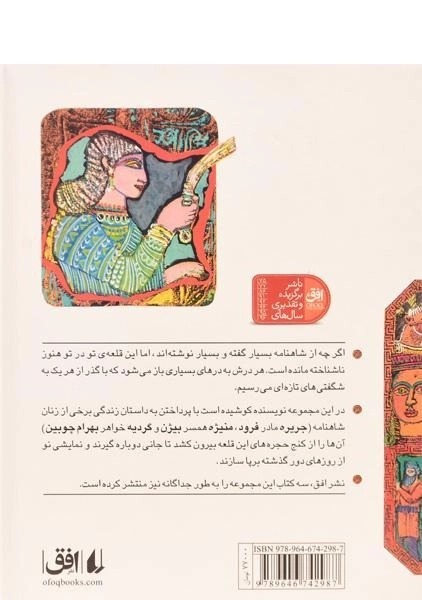 ناشر
برگزیده
و تقدیری
سال‌های
افق
OFOQ
اگر چه از شاهنامه بسیار گفته و بسیار نوشته‌اند، اما این قلعه‌ی تو در تو هنوز
ناشناخته مانده است. هر درش به درهای بسیاری باز می‌شود که با گذر از هر یک به
شگفتی‌های تازه‌ای می‌رسیم.
در این مجموعه نویسنده کوشیده است با پرداختن به داستان زندگی برخی از زنان
شاهنامه (جریره مادر فرود، منیژه همسر بیژن و گردیه خواهر بهرام چوبین)
آن‌ها را از کنج حجره‌های این قلعه بیرون کشد تا جانی دوباره گیرند و نمایشی نو
از روزهای دور گذشته برپا سازند.
نشر افق، سه کتاب این مجموعه را به طور جداگانه نیز منتشر کرده است.
افق
ofoqbooks.com
۷۷۰۰۰ تومان
ISBN 978-964-674-298-7
9 789646 742987